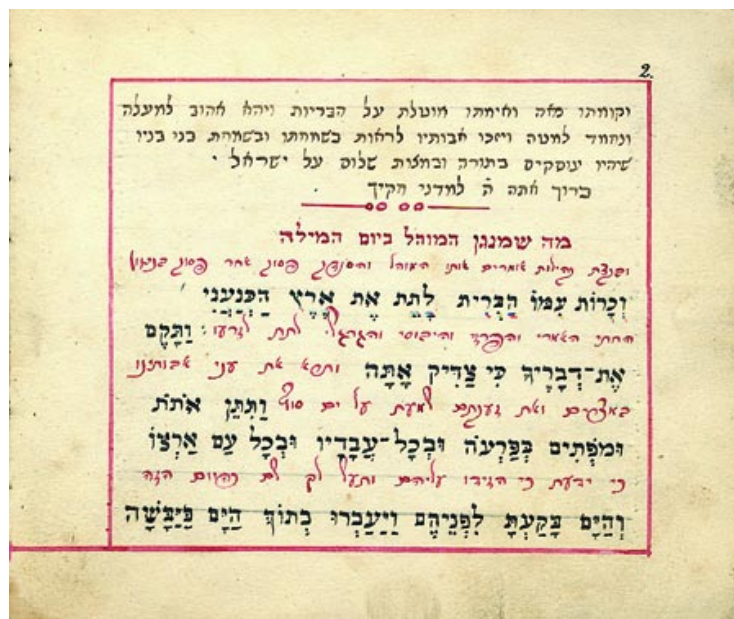 2.
וקומתו נאה ואימתו מוטלת על הבריות ויהא אהוב למעלה
ונחמד למטה ויזכו אבותיו לראות בשמחתו ובשמחת בני בניו
שיהיו עוסקים בתורה ובמצות שלום על ישראל
ברוך אתה ה׳ למדני חקיך
מה שמנגן המוהל ביום המילה
ובקצת קהילות אומרים אותו המוהל והסנדק פסוק אחר פסוק בניגון
וְכָרוֹת עִמּוֹ הַבְּרִית לָתֵת אֶת אֶרֶץ הַכְּנַעֲנִי
החתי האמרי והפרזי והיבוסי והגרגשי לתת לזרעו וַתָּקֶם
אֶת־דְבָרֶיךָ כִּי צַדִּיק אָתָּה ותרא את עני אבותינו
במצרים ואת זעקתם שמעת על ים סוף וַתִּתֵּן אֹתֹת
וּמֹפְתִים בְּפַרְעֹה וּבְכָל־עֲבָדָיו וּבְכָל עַם אַרְצוֹ
כי ידעת כי הזידו עליהם ותעש לך שם כהיום הזה
וְהַיָּם בָּקַעְתָּ לִפְנֵיהֶם וַיַעַבְרוּ בְתוֹךְ הַיָּם בַּיַּבָּשָׁה